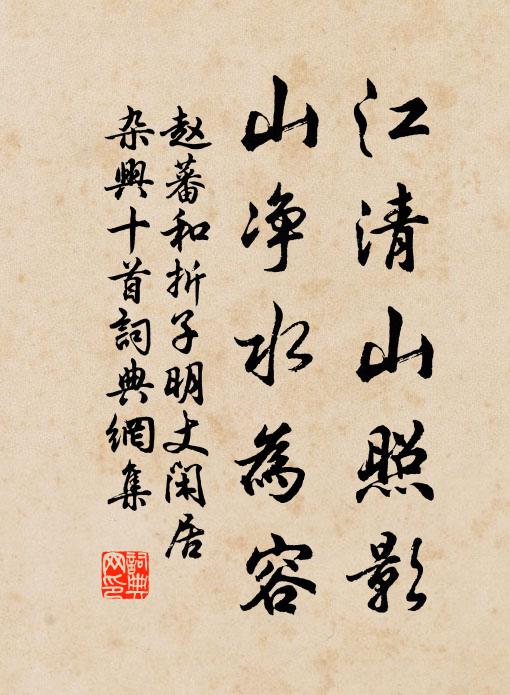 江清山照影
山净水為容
赵蕃和折子明丈闲居
杂興十首詞典網集
詞典网印